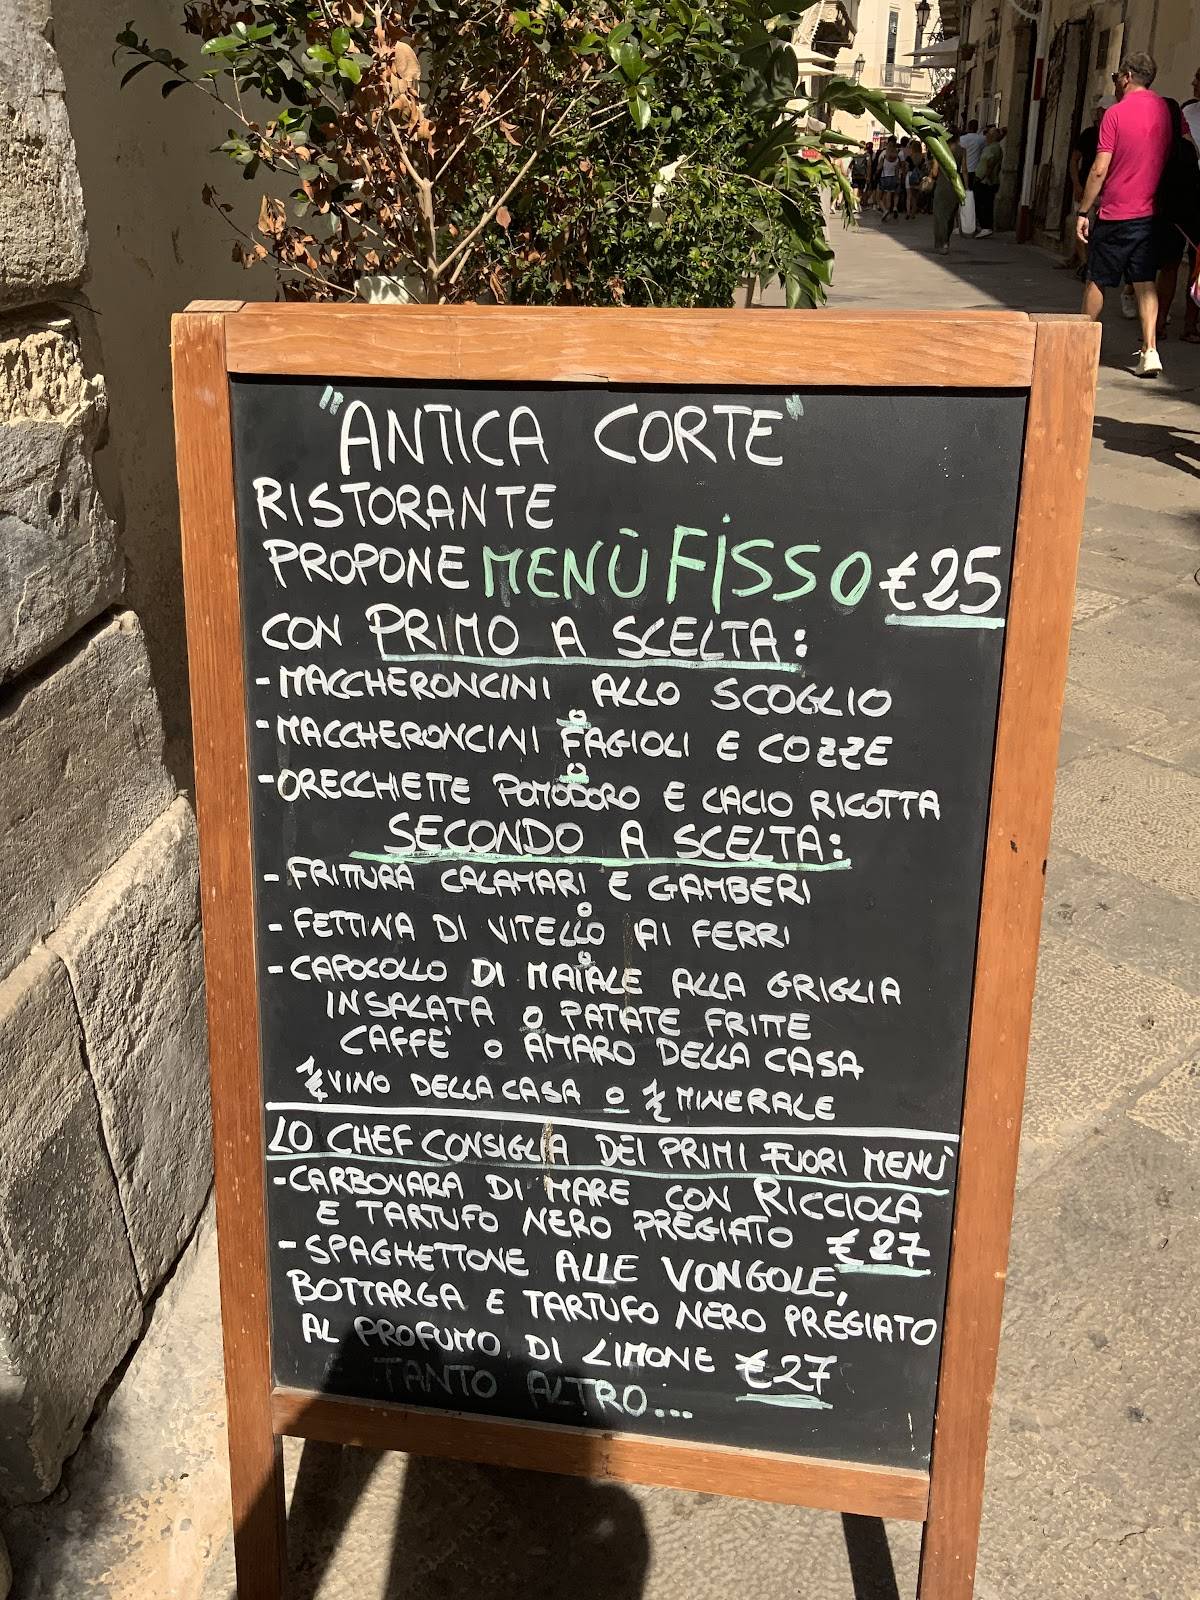 "ANTICA CORTE"
RISTORANTE
PROPONE MENÙ FISSO €25
CON PRIMO A SCELTA:
-MACCHERONCINI ALLO SCOGLIO
O
-MACCHERONCINI FAGIOLI E COZZE
O
-ORECCHIETTE POMODORO E CACIO RICOTTA
SECONDO A SCELTA:
-FRITTURA CALAMARI E GAMBERI
O
-FETTINA DI VITELLO AI FERRI
O
-CAPOCOLLO DI MAIALE ALLA GRIGLIA
INSALATA O PATATE FRITTE
CAFFE' O AMARO DELLA CASA
VINO DELLA CASA O 1/2 MINERALE
LO CHEF CONSIGLIA DEI PRIMI FUORI MENÙ
-CARBONARA DI MARE CON RICCIOLA
E TARTUFO NERO PREGIATO €27
-SPAGHETTONE ALLE VONGOLE,
BOTTARGA E TARTUFO NERO PREGIATO
AL PROFUMO DI LIMONE €27
E TANTO ALTRO...